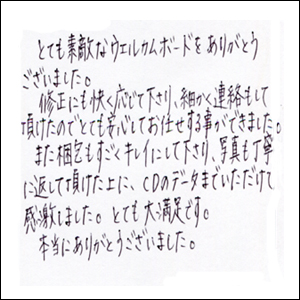 とても素敵なウェルカムボードをありがとう
ございました。
修正にも快く応じて下さり、細かく連絡もして
頂けたのでとても安心してお任せする事ができました。
また梱包もすごくキレイにして下さり、写真も丁寧
に返して頂けた上に、CDのデータまでいただけて
感激しました。とても大満足です。
本当にありがとうございました。